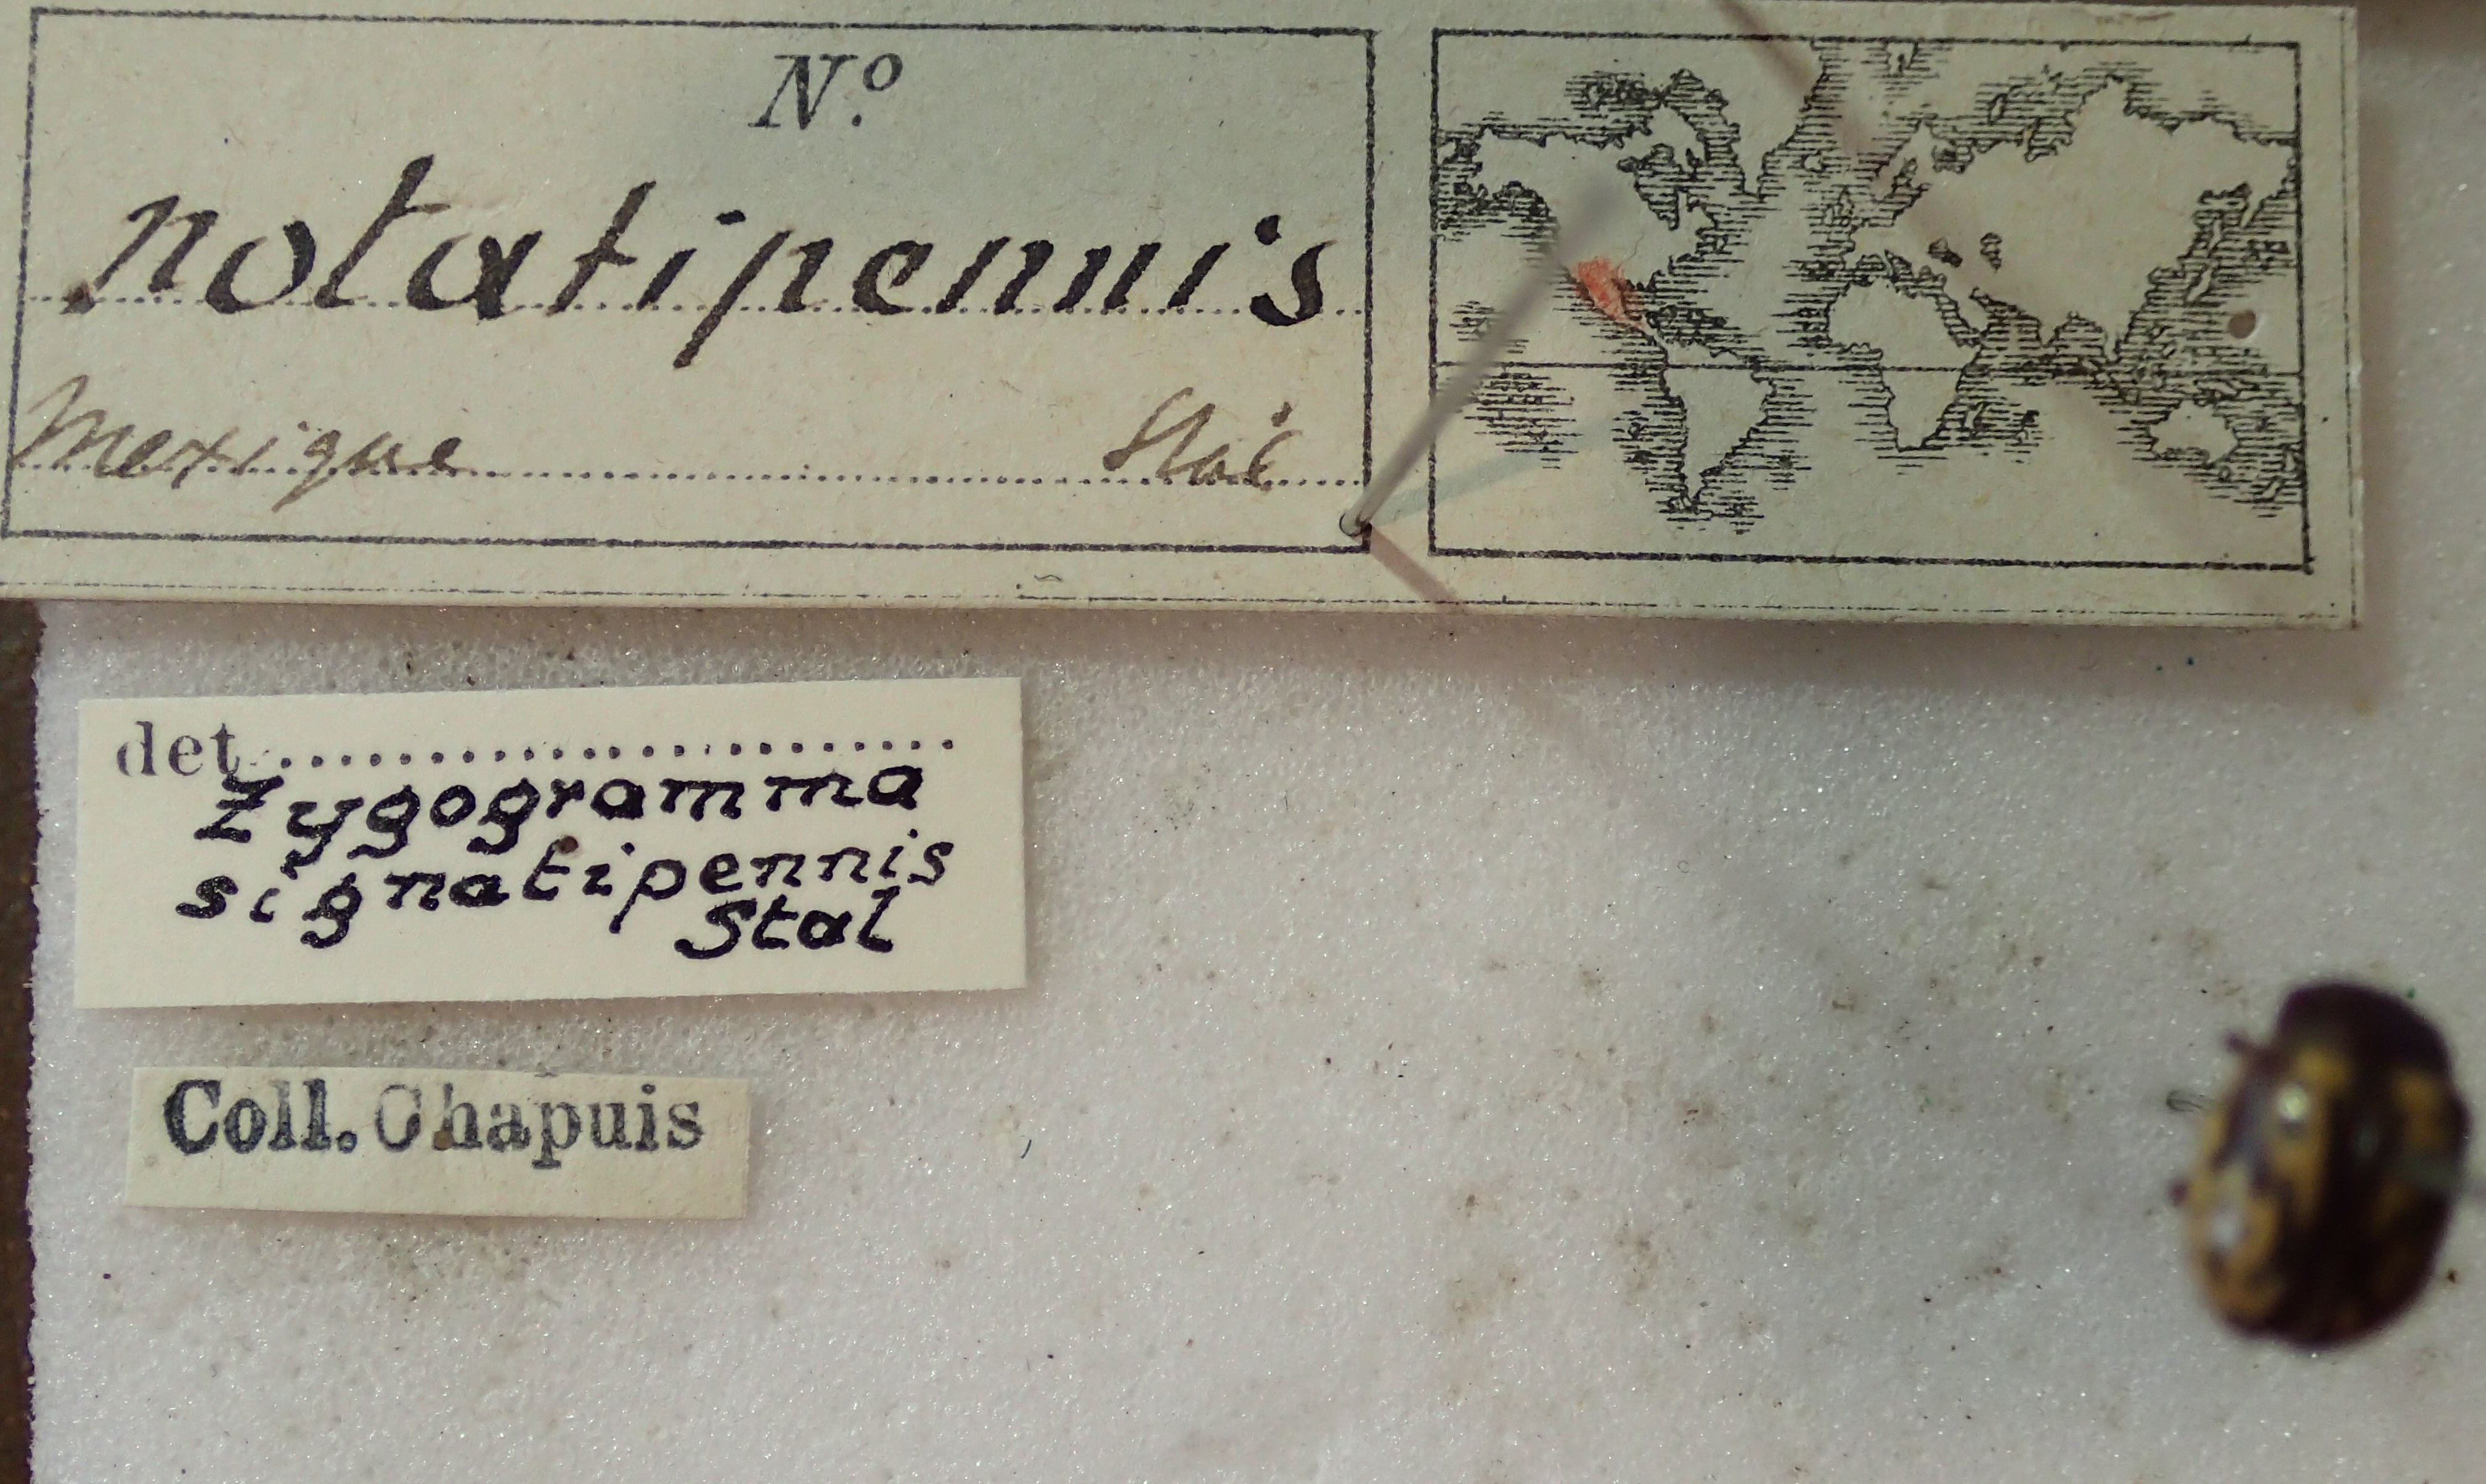 N.º
notatipennis
Mexique Stål
det
Zygogramma
signatipennis
Stal
Coll. Chapuis